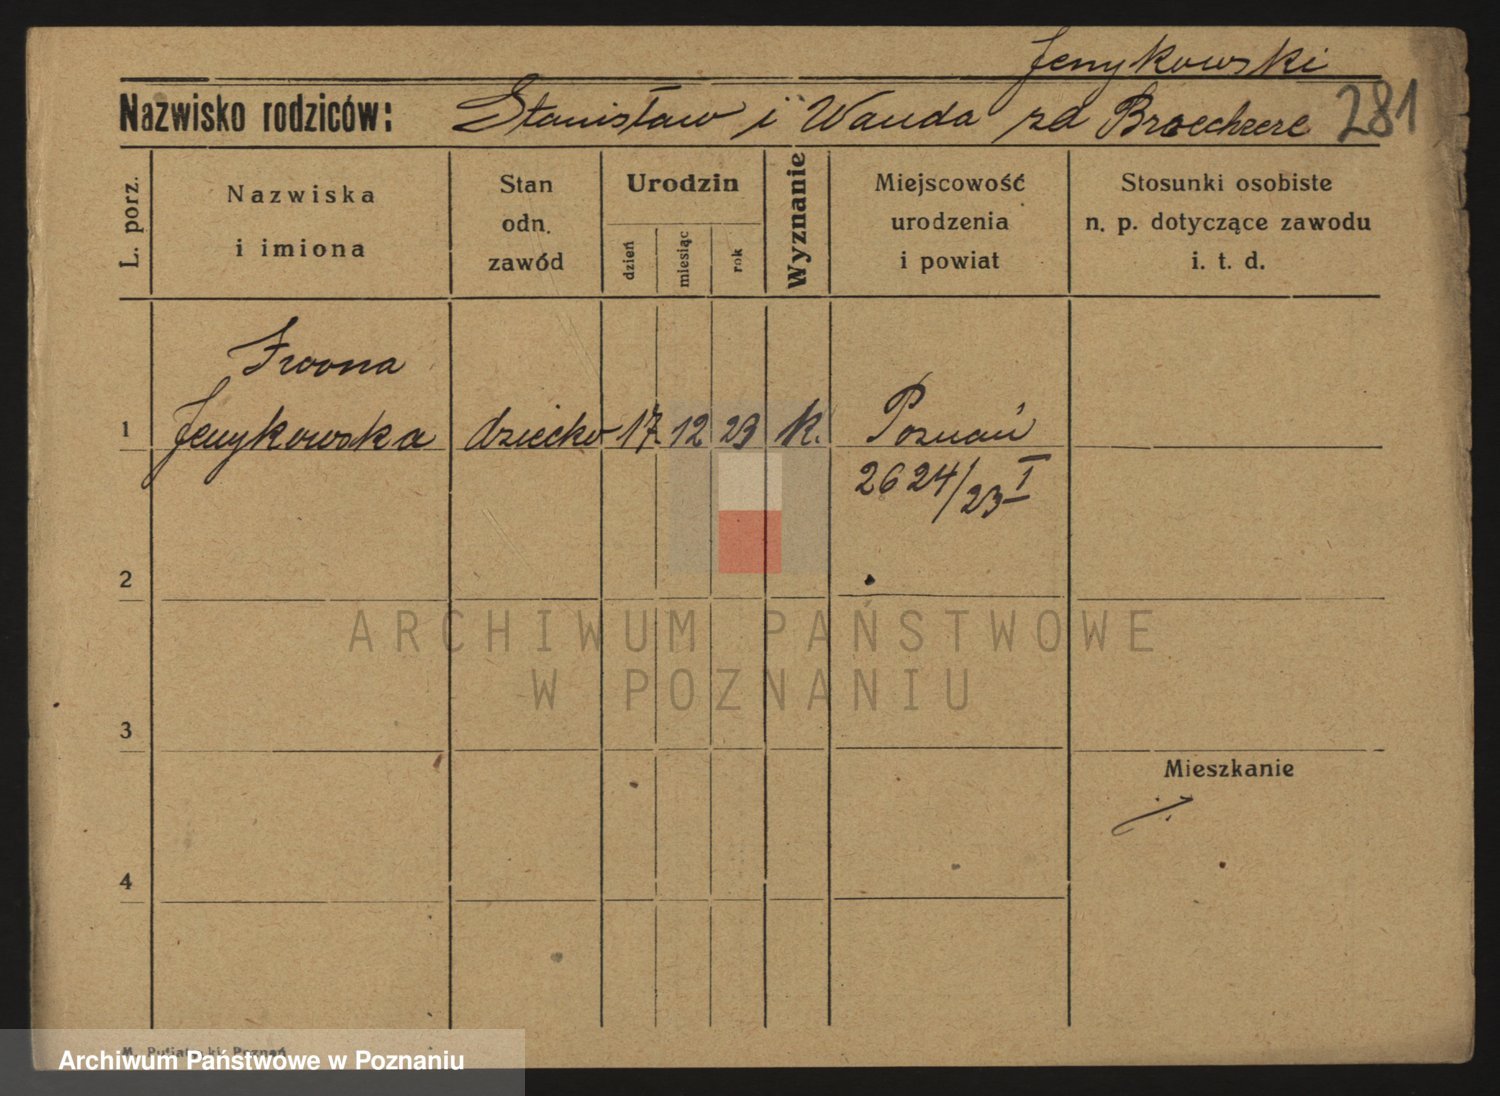 Jenykowski
Nazwisko rodziców: Stanisław i Wanda zd 281
L. porz.
Nazwiska
i imiona
Stan
odn.
zawód
Urodzin
dzień
miesiąc
rok
Wyznanie
Miejscowość
urodzenia
i powiat
Stosunki osobiste
n. p. dotyczące zawodu
i. t. d.
Iwona
1 Jenykowska dziecko 17 12 23 k. Poznań
2624/23 I
2
ARCHIWUM PAŃSTWOWE
W POZNANIU
3
Mieszkanie
4
Archiwum Państwowe w Poznaniu